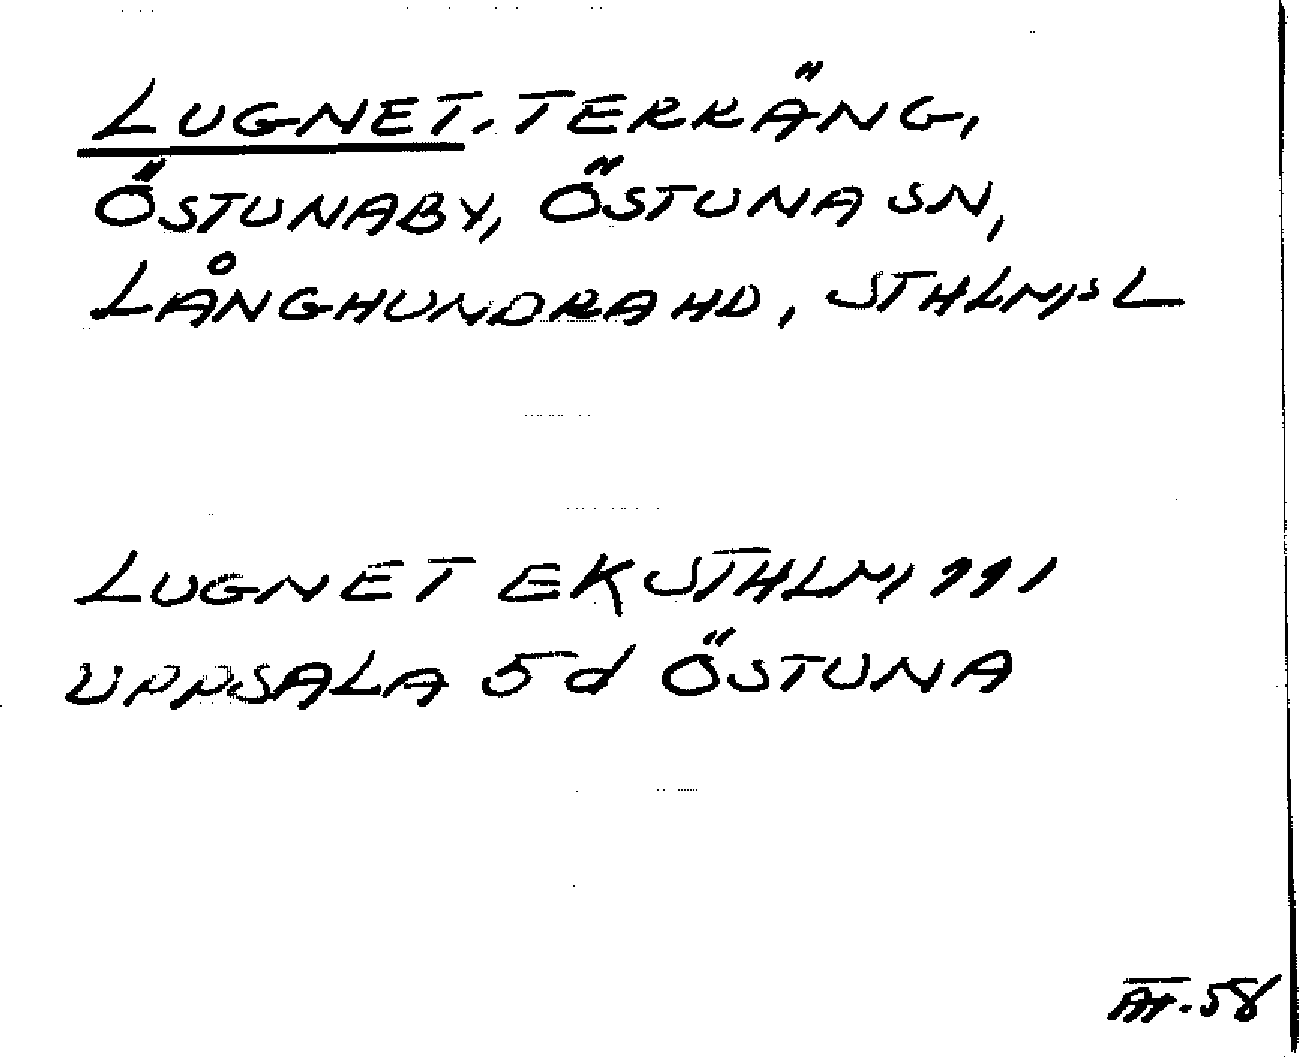 LUGNET, TERRÄNG,
ÖSTUNABY, ÖSTUNA SN,
LÅNGHUNDRA HD, STHLMS L
LUGNET EK STHLM 111
UPPSALA 5d ÖSTUNA
AH-58